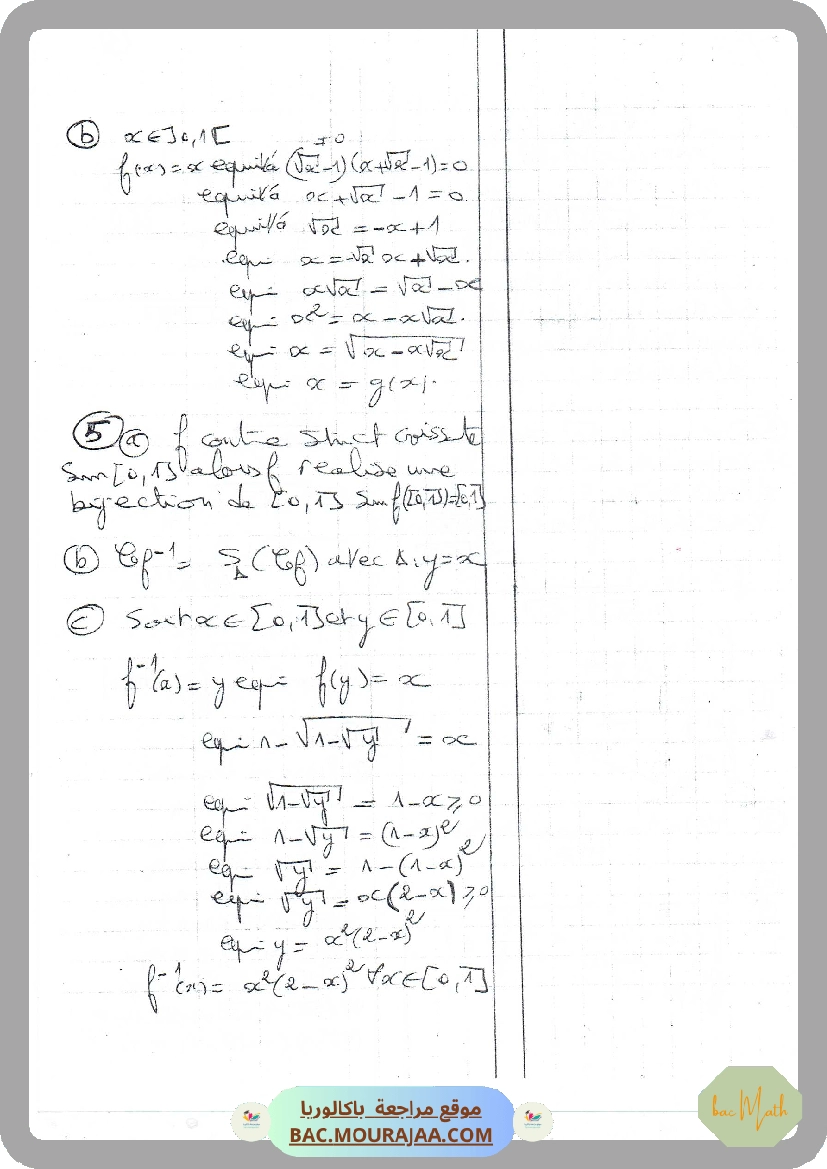 ⓑ x∈]0,1[
≠0
f(x)=x équivlá (√x-1)(x+√x-1)=0
équivlá x+√x-1=0
équivlá √x=-x+1
équi x=-√x x+√x.
équi x√x=√x-x
équi x²=x-x√x.
équi x=√(x-x√x)
équi x=g(x).
⑤ ⓐ f contie strict croisste
sur [0,1] alors f réalise une
bijection de [0,1] sur f([0,1])=[0,1]
ⓑ 𝒞f⁻¹= S_Δ(𝒞f) avec Δ:y=x
ⓒ Soit x∈[0,1] et y∈[0,1]
f⁻¹(x)=y équi f(y)=x
équi 1-√(1-√y)=x
équi √(1-√y)=1-x≥0
équi 1-√y=(1-x)²
équi √y=1-(1-x)²
équi √y=x(2-x)≥0
équi y=x²(2-x)²
f⁻¹(x)=x²(2-x)² ∀x∈[0,1]
موقع مراجعة باكالوريا
BAC.MOURAJAA.COM
bac Math